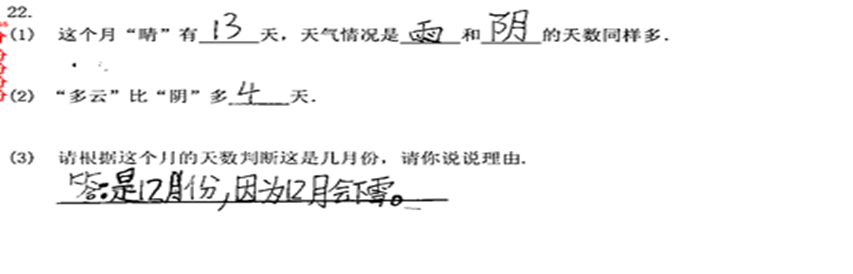 22.
(1) 这个月“晴”有 13 天，天气情况是 雨 和 阴 的天数同样多.
(2) “多云”比“阴”多 4 天.
(3) 请根据这个月的天数判断这是几月份，请你说说理由.
答:是12月份,因为12月会下雪。